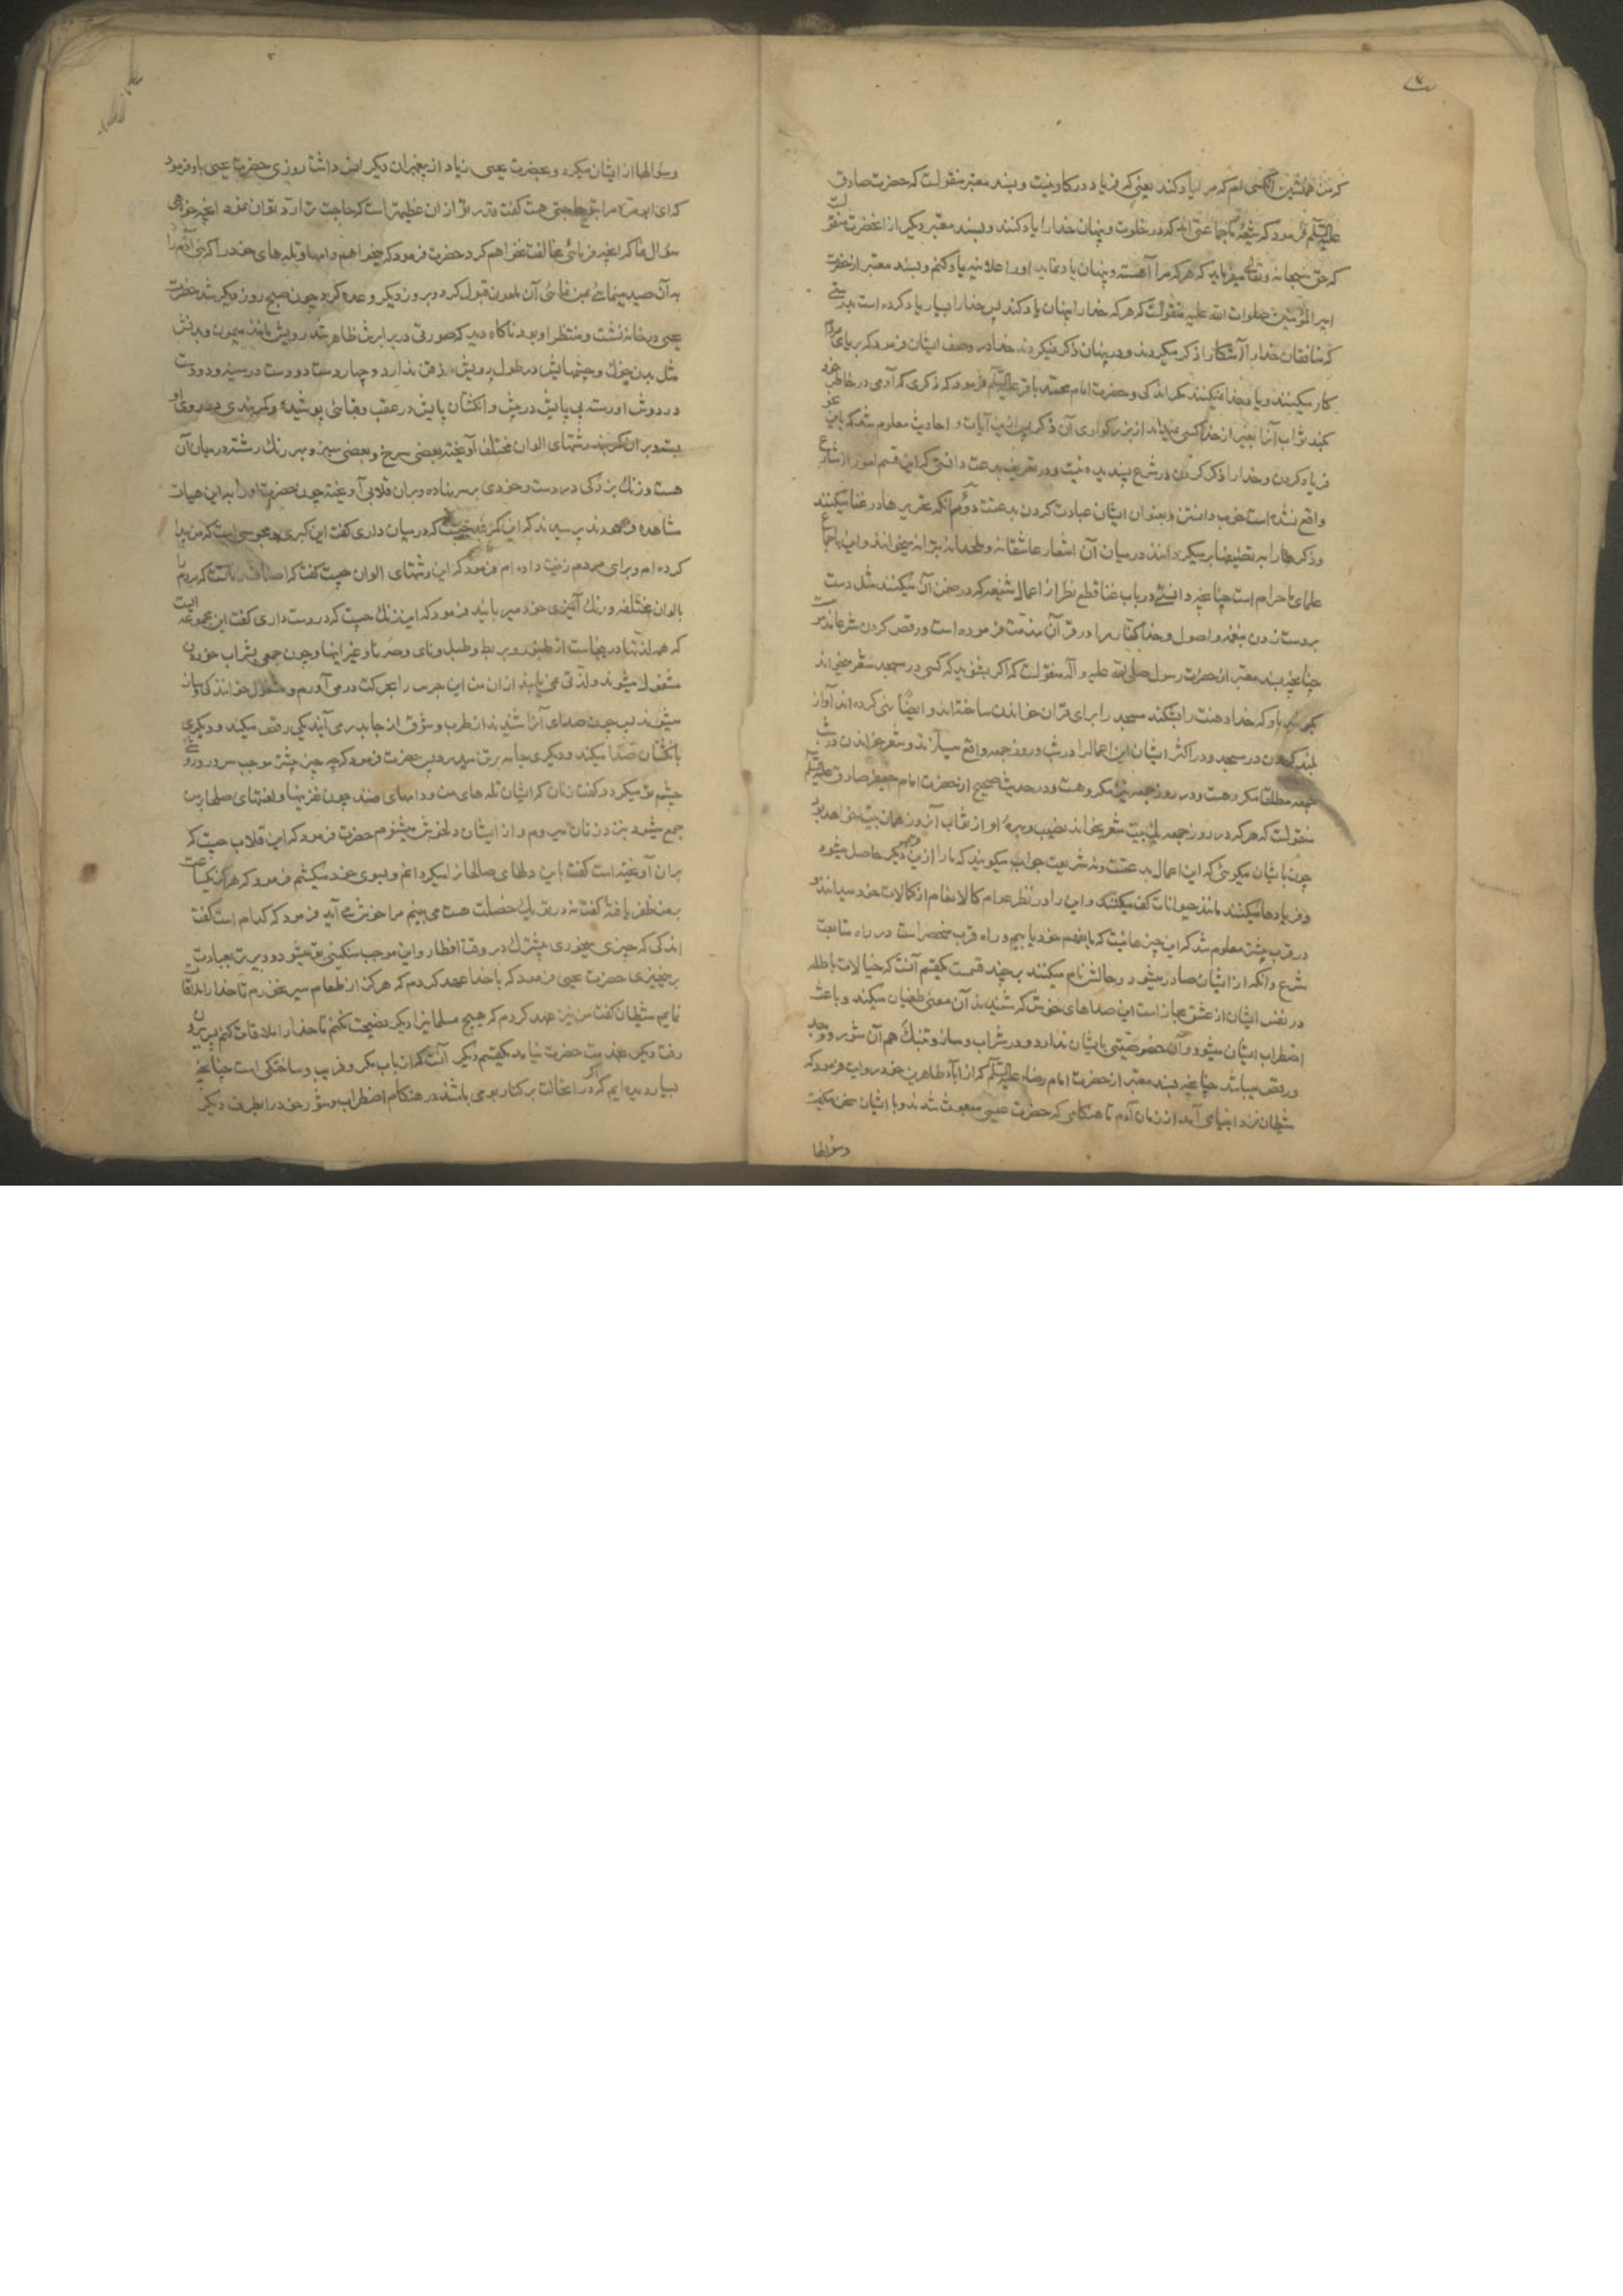 که من همنشین کسی ام که مرا یاد کند یعنی که فریاد در کار نیست و بسند معتبر منقولست که حضرت صادق
علیه السلم فرمود که شیعه ما جماعتی اند که در خلوت و پنهان خدا را یاد کنند و بسند معتبر دیگر از انحضرت منقولست
که حق سبحانه و تعالی میفرماید که هرکه مرا آهسته و پنهان یاد نماید او را علانیه یاد کنم و بسند معتبر از حضرت
امیر المؤمنین صلوات الله علیه منقولست که هرکه خدا را پنهان یاد کند پس خدا را بسیار یاد کرده است بدرستی
که منافقان خدا را آشکارا ذکر میکردند و در پنهان ذکر نمیکردند خدا در وصف ایشان فرمود که بریای مردم
کار میکنند و یاد خدا نمیکنند مکر اندکی و حضرت امام محمد باقر علیه السلم فرمود که ذکری که آدمی در خاطر خود
کند ثواب آنرا بغیر از خدا کسی نمیداند از بزرکواری آن ذکر پس ازین آیات و احادیث معلوم شد که باین
فریاد کردن و خدا را ذکر کردن در شرع پسندیده نیست و در تعریف بدعت دانستی که این قسم امور از شارع
واقع نشده است خوب دانستن و بعنوان ایشان عبادت کردن بدعتست دوم انکه تحریرها در غنا میکنند
و ذکرها را به تصنیفها بر میکردانند در میان آن اشعار عاشقانه و ملحدانه بترانه میخوانند و این باجماع
علمای ما حرام است چنانچه دانستی در باب غنا قطع نظر از اعمال شنیعه که در ضمن آن میکنند مثل دست
بر دست زدن بنغمه و اصول و خدا کفار را در قرآن مذمت فرموده است و رقص کردن شرعا مذموم
چنانچه بسند معتبر از حضرت رسول صلی الله علیه و آله منقولست که اکر بشنوید که کسی در مسجد شعر میخواند
بکوئید باو که خدا دهنت را بشکند مسجد را برای قرآن خواندن ساخته اند و ایضا نهی کرده اند آواز
بلند کردن در مسجد و در اکثر ایشان این اعمالرا در شب و روز جمعه واقع میسازند و شعر خواندن در شب
جمعه مطلقا مکروهست و در روز جمعه نیز مکروهست و در حدیث صحیح از حضرت امام جعفر صادق علیه السلم
منقولست که هرکه در روز جمعه یک بیت شعر بخواند نصیب و بهره او از ثواب آنروز همان بیت خواهد بود
چون بایشان میکوئی که این اعمال بدعتست و نه شریعت جواب میکویند که ما را ازین قرب دیکر حاصل میشود
و فریادها میکنند مانند حیوانات کف میکنند و این را در نظر عوام کالانعام از کمالات خود میدانند و
در قرب پیشتر معلوم شد که این چیزها نیست که ما بفهم خود یابیم و راه قرب منحصر است در راه متابعت
شرع و انکه از ایشان صادر میشود و حالتش نام میکنند بر چند قسمت یکقسم آنست که خیالات باطله
در نفس ایشان از عشق مجاز است این صداهای خوش که شنیدند آن معنی طغیان میکند و باعث
اضطراب ایشان میشود و آن خصوصیتی بایشان ندارد و در شراب و ساز و تنبک هم آن شور و وجد
و رقص میباشد چنانچه بسند معتبر از حضرت امام رضا علیه السلم که از آباء طاهرین خود روایت فرمود که
شیطان نزد انبیا می آمد از زمان آدم تا هنکامی که حضرت عیسی مبعوث شدند و با ایشان سخن میکفت
وسؤالها
وسؤالها از ایشان میکرد و بحضرت عیسی زیاد از پیغمبران دیکر انس داشت روزی حضرت عیسی باو فرمود
که ای ابو مره مرا بتو حاجتی هست کفت قدر تو از ان عظیمتر است که حاجت ترا رد توان نمود انچه خواهی
سؤال نما که انچه فرمائی مخالفت نخواهم کرد حضرت فرمود که میخواهم دامها و تله های خود را که بنی آدم را
به آن صید مینمائی بمن نمائی آن ملعون قبول کرد و بروز دیکر وعده کرد چون صبح روز دیکر شد حضرت
عیسی در خانه نشست و منتظر او بود ناکاه دید که صورتی در برابرش ظاهر شد رویش مانند میمون و بدنش
مثل بدن خوک و چشمهایش در طول برویش ذقن ندارد و چهار دست دو دست در سینه و دو دست
در دوش او رسته پی پایش در پیش و انکشتان پایش در عقب و قبائی پوشیده و کمربندی در روی او
بسته و بران کمربند رشتهای الوان مختلف آویخته بعضی سرخ و بعضی سبز و بهر رنک رشته در میان آن
هست و زنک بزرکی در دست و خودی بر سر نهاده و بران قلابی آویخته چون حضرت او را باین هیات
مشاهده فرمودند پرسیدند که این کمربند چیست که در میان داری کفت این کبری و مجوسی است که من پیدا
کرده ام و برای مردم زینت داده ام فرمود که این رشتهای الوان چیست کفت که اصناف زنانست که مردم را
بالوان مختلفه و رنک آمیزی خود میربایند فرمود که این زنک چیست که در دست داری کفت این مجموعه ایست
که همه لذتها در اینجاست از طنبور و بربط و طبل و نای و صرنا و غیر اینها و چون جمعی بشراب خوردن
مشغول میشوند و لذتی نمی یابند از ان من این جرس را بحرکت در می آورم و مشغول خوانندکی و ساز
میشوند پس چون صدای آنرا شنیدند از طرب و شوق از جا بدر می آیند یکی رقص میکند و دیکری
بانکشتان صدا میکند و دیکری جامه بر تن میدرد پس حضرت فرمود که چه چیز بیشتر موجب سرور و روشنی
چشم تو میکردد کفت زنان که ایشان تله های من و دامهای منند چون نفرینها و لعنتهای صلحا بر من
جمع میشود بنزد زنان میروم و از ایشان دلخوش میشوم حضرت فرمود که این قلاب چیست که
بران آویخته است کفت باین دلهای صالحانرا میکردانم و بسوی خود میکشم فرمود که هرکز یکساعت
بمن ظفر یافتهٔ کفت نه در تو یک خصلت هست می بینم مرا خوش می آید فرمود که کدام است کفت
اندکی که چیزی میخوری بیشترک در وقت افطار و این موجب سنکینی تو میشود و دیرتر بعبادت
برمیخیزی حضرت عیسی فرمود که با خدا عهد کردم که هرکز از طعام سیر نخورم تا خدا را ملاقات
نمایم شیطان کفت من نیز عهد کردم که هیچ مسلمانیرا دیکر نصیحت نکنم تا خدا را ملاقات کنم پس بیرون
رفت دیکر بخدمت حضرت نیامد یکقسم دیکر آنست که از باب مکر و فریب و ساختکی است چنانچه
بسیار دیده ایم که اکر در انحالت بر کنار بومی باشند در هنکام اضطراب و شور خود را بطرف دیکر